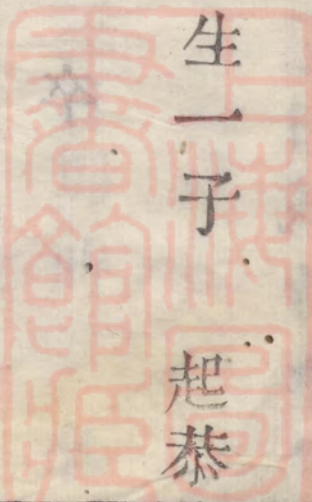 生一子 起恭